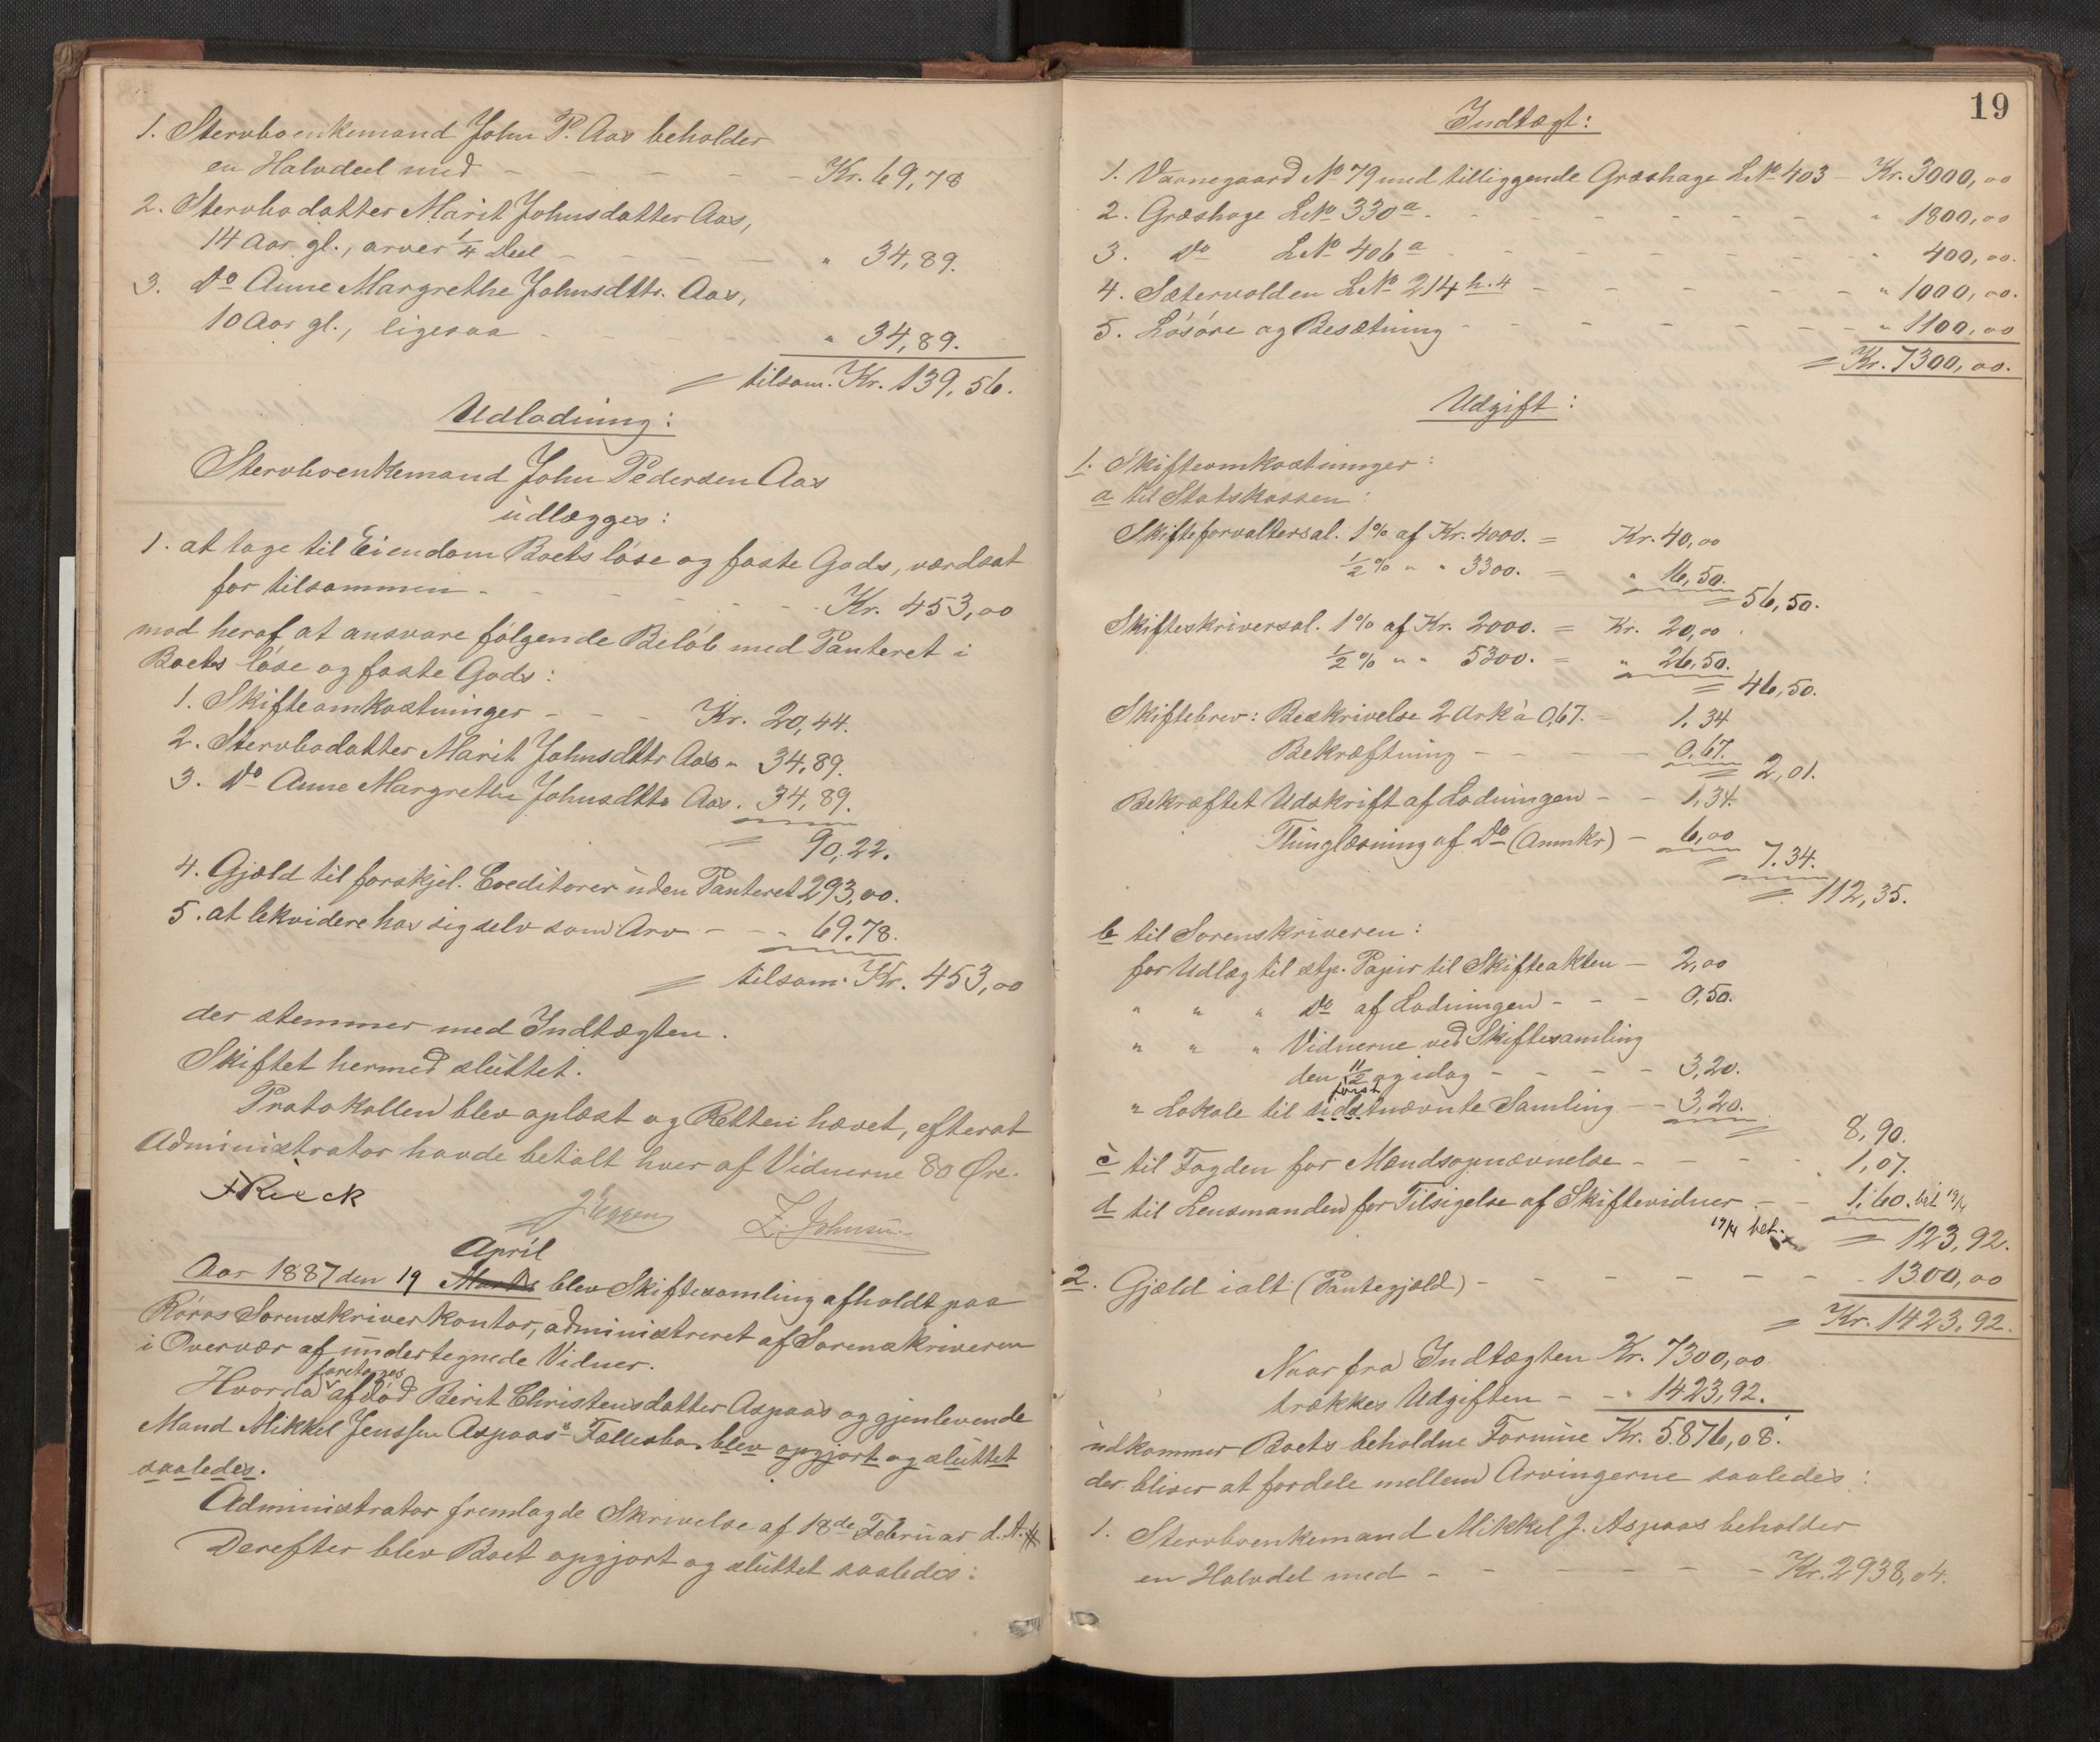 1. Stervboenkemand John P. Aas beholder
en Halvdeel med - - - - - Kr. 69,78
2. Stervbodatter Marit Johnsdatter Aas,
14 Aar gl., arver 1/4 Deel - - - - " 34,89.
3. Do Anne Margrethe Johnsdttr. Aas,
10 Aar gl., ligesaa - - - - " 34,89.
= tilsam. Kr. 139,56.
Udlodning:
Stervboenkemand John Pedersen Aas
udlægges:
1. at tage til Eiendom Boets løse og faste Gods, værdsat
for tilsammen - - - - - - Kr. 453,00
mod heraf at ansvare følgende Beløb med Panteret i
Boets løse og faste Gods:
1. Skifteomkostninger - - - Kr. 20,44.
2. Stervbodatter Marit Johnsdttr Aas " 34,89.
3. Do Anne Margrethe Johnsdttr Aas. 34,89.
= 90,22.
4. Gjæld til forskjel. Creditorer uden Panteret 293,00.
5. at lekvidere hos sig selv som Arv - - - 69,78.
= tilsam. Kr. 453,00
der stemmer med Indtægten.
Skiftet hermed sluttet.
Protokollen blev oplæst og Retten hævet, efterat
Administrator havde betalt hver af Vidnerne 80 Øre.
FRieck
J. Eggen Z. Johnsen
April
Aar 1887 den 19 Marts blev Skiftesamling afholdt paa
Røros Sorenskriverkontor, administreret af Sorenskriveren
i Overvær af undertegnede Vidner.
foretoges
Hvorda afdød Berit Christensdatter Aspaas og gjenlevende
Mand Mikkel Jenssen Aspaas's Fællesbo blev opgjort og sluttet
saaledes.
Administrator fremlagde Skrivelse af 18de Februar d. A.
Derefter blev Boet opgjort og sluttet saaledes:
19
Indtægt:
1. Vaanegaard No 79 med tilliggende Græshage LNo 403 - Kr. 3000,00
2. Græshage LNo 330a - - - - - - - " 1800,00
3. Do LNo 406a - - - - - - - " 400,00.
4. Sætervolden LNo 214 h.4 - - - - - - " 1000,00.
5. Løsøre og Besætning - - - - - - - " 1100,00
= Kr. 7300,00.
Udgift:
1. Skifteomkostninger:
a til Statskassen:
Skifteforvaltersal. 1% af Kr. 4000. = Kr. 40,00
1/2% " " 3300. = " 16,50.
= 56,50.
Skifteskriversal. 1% af Kr. 2000. = Kr. 20,00.
1/2% " " 5300. = " 26,50.
= 46,50.
Skiftebrev: Beskrivelse 2 Ark à 0,67. = 1,34
Bekræftning - - - - - 0,67.
= 2,01.
Bekræftet Udskrift af Lodningen - - 1,34.
Thinglæsning af Do (Anmkr) - 6,00
= 7.34.
= 112,35.
b til Sorenskriveren:
for Udlæg til stp. Papir til Skifteakten - 2,00
" " " Do af Lodningen - - - 0,50.
" " " Vidnerne ved Skiftesamling
den 11/2 og idag - - - - - 3,20.
først
" Lokale til sidstnævnte Samling - - 3,20.
= 8,90.
c til Fogden for Mandsopnævnelse - - - - 1,07.
d til Lensmanden for Tilsigelse af Skiftevidner - - 1,60. bet. 19/4
19/4 bet.
= 123,92.
2. Gjæld ialt (Pantegjæld) - - - - - - - 1300,00
= Kr. 1423,92.
Naar fra Indtægten Kr. 7300,00
trækkes Udgiften - - " 1423,92.
udkommer Boets beholdne Formue Kr. 5876,08.
der bliver at fordele mellem Arvingerne saaledes:
1. Stervboenkemand Mikkel J. Aspaas beholder
en Halvdel med - - - - - - Kr. 2938,04.